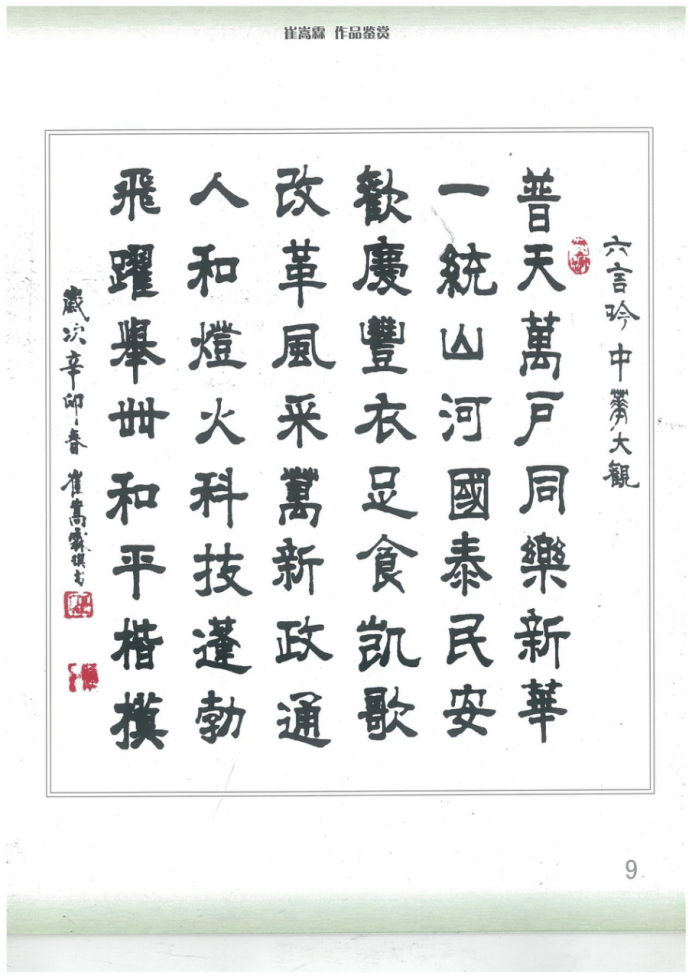 崔嵩霖 作品鉴赏
六言吟中華大觀
普天萬戸同樂新華
一統山河國泰民安
歡慶豐衣足食凱歌
改革風采萬新政通
人和燈火科技蓬勃
飛躍舉世和平楷模
歲次辛卯春崔嵩霖撰書
9